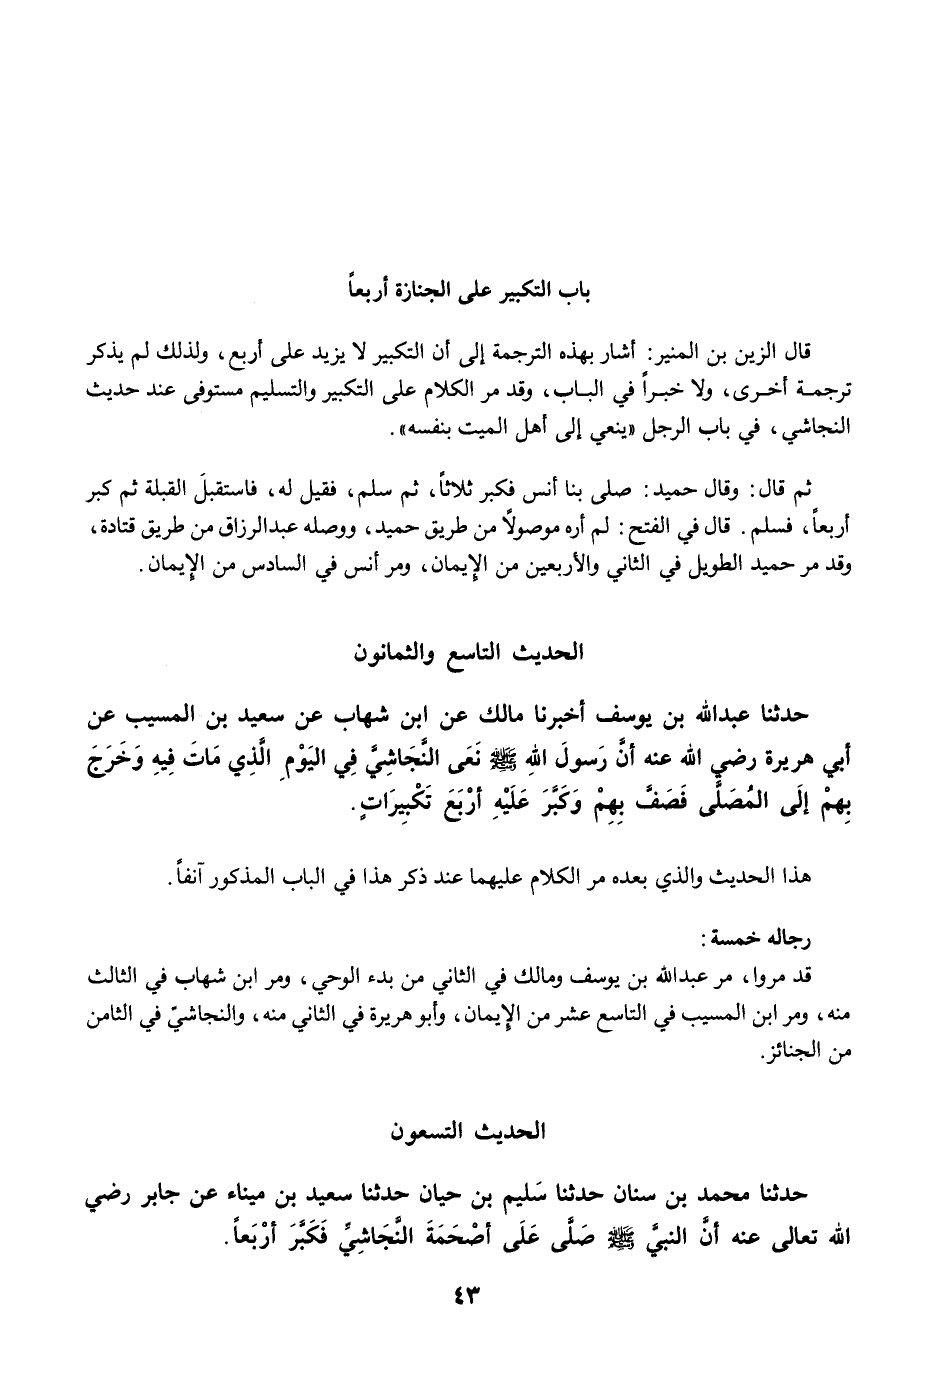 باب التكبير على الجنازة أربعاً
قال الزين بن المنير: أشار بهذه الترجمة إلى أن التكبير لا يزيد على أربع، ولذلك لم يذكر
ترجمـة أخـرى، ولا خبـراً في البـاب، وقد مر الكلام على التكبير والتسليم مستوفى عند حديث
النجاشي، في باب الرجل «ينعي إلى أهل الميت بنفسه».
ثم قال: وقال حميد: صلى بنا أنس فكبر ثلاثاً، ثم سلم، فقيل له، فاستقبلَ القبلة ثم كبر
أربعاً، فسلم. قال في الفتح: لم أره موصولاً من طريق حميد، ووصله عبدالرزاق من طريق قتادة،
وقد مر حميد الطويل في الثاني والأربعين من الإيمان، ومر أنس في السادس من الإيمان.
الحديث التاسع والثمانون
حدثنا عبدالله بن يوسف أخبرنا مالك عن ابن شهاب عن سعيد بن المسيب عن
أبي هريرة رضي الله عنه أنَّ رَسولَ اللهِ ﷺ نَعَى النَّجَاشِيَّ فِي اليَوْمِ الَّذِي مَاتَ فِيهِ وَخَرَجَ
بِهِمْ إلَى المُصَلَّى فَصَفَّ بِهِمْ وَكَبَّرَ عَلَيْهِ أرْبَعَ تَكْبِيرَاتٍ.
هذا الحديث والذي بعده مر الكلام عليهما عند ذكر هذا في الباب المذكور آنفاً.
رجاله خمسة:
قد مروا، مر عبدالله بن يوسف ومالك في الثاني من بدء الوحي، ومر ابن شهاب في الثالث
منه، ومر ابن المسيب في التاسع عشر من الإيمان، وأبو هريرة في الثاني منه، والنجاشيّ في الثامن
من الجنائز.
الحديث التسعون
حدثنا محمد بن سنان حدثنا سَليم بن حيان حدثنا سعيد بن ميناء عن جابر رضي
الله تعالى عنه أنَّ النبيَّ ﷺ صَلَّى عَلَى أصْحَمَةَ النَّجَاشِيِّ فَكَبَّرَ أرْبَعاً.
٤٣